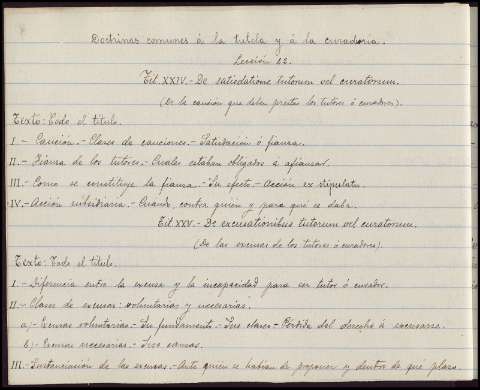 Doctrinas comunes á la tutela y á la curaduria.
Lección 22.
Tit. XXIV.- De satisdatione tutorum vel curatorum.
(De la caución que deben prestar los tutores ó curadores).
Texto: Todo el título.
I.- Caución.- Clases de cauciones.- Satisdación ó fianza.
II.- Fianza de los tutores.- Cuales estaban obligados á afianzar.
III.- Como se constituye la fianza.- Su efecto.- Acción ex stipulatu.
IV.- Acción subsidiaria.- Cuando, contra quien y para qué se daba.
Tit. XXV.- De excusationibus tutorum vel curatorum.
(De las excusas de los tutores ó curadores).
Texto: Todo el título.
I.- Diferencia entre la excusa y la incapacidad para ser tutor ó curador.
II.- Clases de excusas: voluntarias y necesarias.
a)- Excusas voluntarias.- Su fundamento.- Sus clases.- Pérdida del derecho á excusarse.
b)- Excusas necesarias.- Sus causas.
III.- Sustanciación de las excusas.- Ante quien se habian de proponer y dentro de qué plazo.